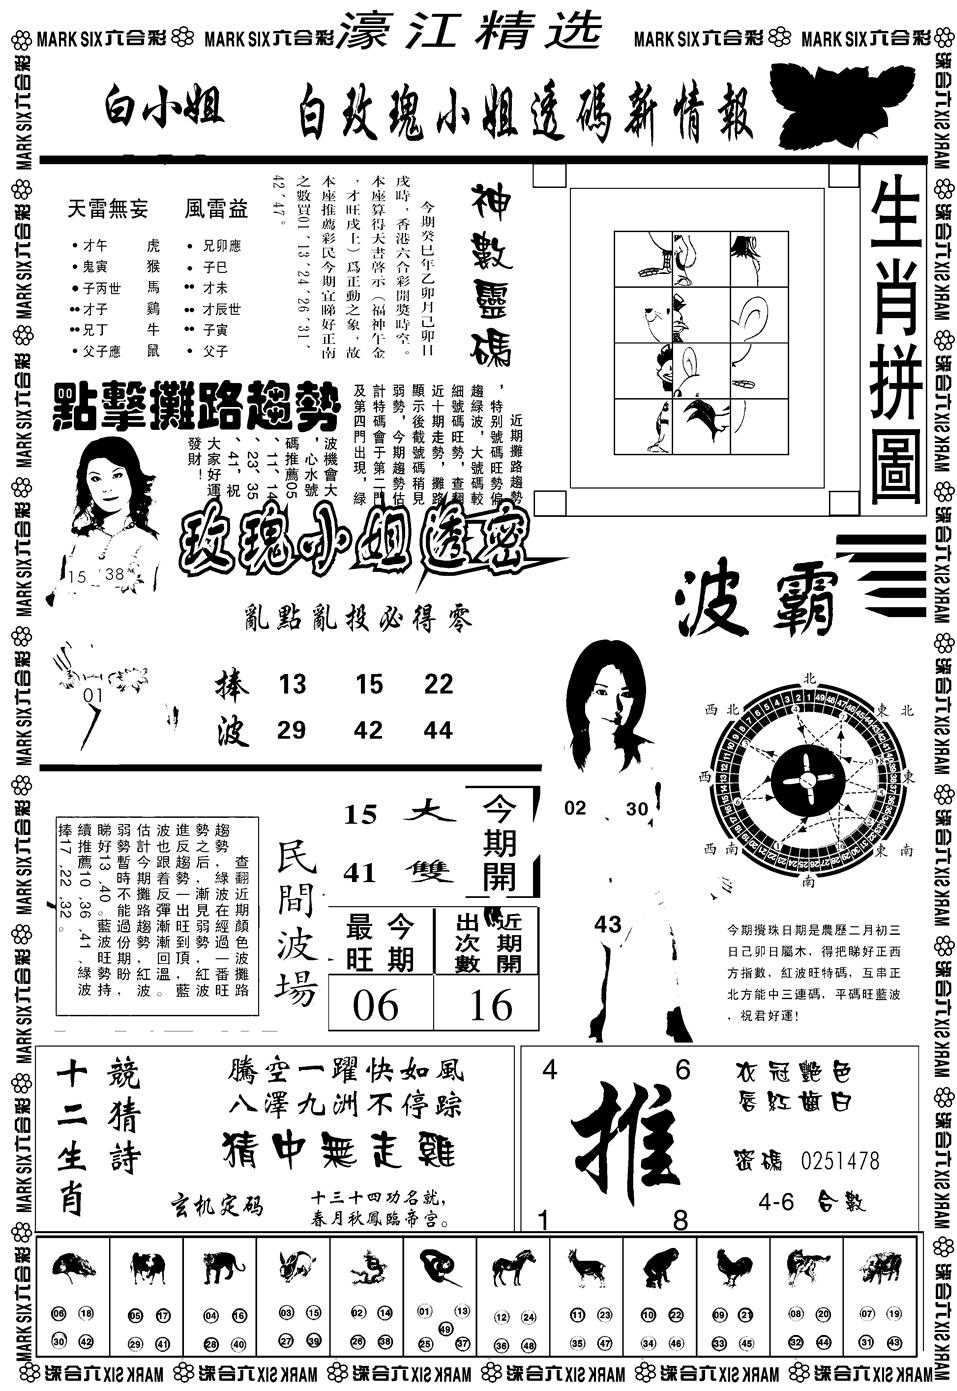 MARK SIX六合彩 MARK SIX六合彩 濠江精选 MARK SIX六合彩 MARK SIX六合彩
白小姐 白玫瑰小姐透碼新情報
天雷無妄 風雷益
•才午 虎 •兄卯應
•鬼寅 猴 •子巳
●子丙世 馬 ••才未
••才子 鷄 ••才辰世
••兄丁 牛 ••子寅
•父子應 鼠 •父子
神數靈碼
今期癸巳年乙卯月己卯日
戌時，香港六合彩開獎時空。
本座算得天書啓示（福神午金
，才旺戌土）爲正動之象，故
本座推薦彩民今期宜睇好正南
之數買01、13、24、26、31、
42、47。
生肖拼圖
點擊攤路趨勢
近期攤路趨勢
，特别號碼旺勢偏
趨綠波，大號碼較
細號碼旺勢，查翻
近十期走勢，攤路
顯示後截號碼稍見
弱勢，今期趨勢估
計特碼會于第二門
及第四門出現，綠
波機會大
，心水號
碼推薦05
、11、14
、23、35
、41，祝
大家好運
發財！
15 38
01
玫瑰小姐透密
亂點亂投必得零
捧波
13 15 22
29 42 44
波霸
02 30
43
北
東北
東
東南
南
西南
西
西北
今期攪珠日期是農歷二月初三
日己卯日屬木，得把睇好正西
方指數，紅波旺特碼，互串正
北方能中三連碼，平碼旺藍波
，祝君好運！
查翻近期顔色波攤路
趨勢，綠波在經過一番旺
勢之后，漸見弱勢，紅波
進反趨勢一出旺到頂，藍
波也跟着反彈漸漸回溫。
估計今期攤路趨勢，紅波
弱勢暫時不能過份期盼，
睇好13、40。藍波旺勢持
續推薦10、36、41，綠波
捧17、22、32。
民間波場
今期開
15 大
41 雙
今期最旺
近期開出次數
06 16
競猜詩
十二生肖
騰空一躍快如風
八澤九洲不停踪
猜中無走雞
玄机定码
十三十四功名就，
春月秋鳳臨帝宫。
4 6
推
1 8
衣冠艷色
唇紅齒白
密碼 0251478
4-6 合數
06 18 30 42
05 17 29 41
04 16 28 40
03 15 27 39
02 14 26 38
01 13 25 37 49
12 24 36 48
11 23 35 47
10 22 34 46
09 21 33 45
08 20 32 44
07 19 31 43
MARK SIX六合彩 MARK SIX六合彩 MARK SIX六合彩 MARK SIX六合彩 MARK SIX六合彩 MARK SIX六合彩